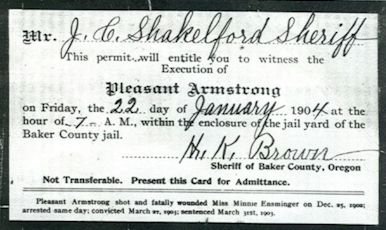 Mr. J. C. Shakelford Sheriff
This permit will entitle you to witness the
Execution of
Pleasant Armstrong
on Friday, the 22 day of January 1904 at the
hour of 7 A. M., within the enclosure of the jail yard of the
Baker County jail.
H. K. Brown
Sheriff of Baker County, Oregon
Not Transferable. Present this Card for Admittance.
Pleasant Armstrong shot and fatally wounded Miss Minnie Ensminger on Dec. 25, 1902;
arrested same day; convicted March 27, 1903; sentenced March 31st, 1903.